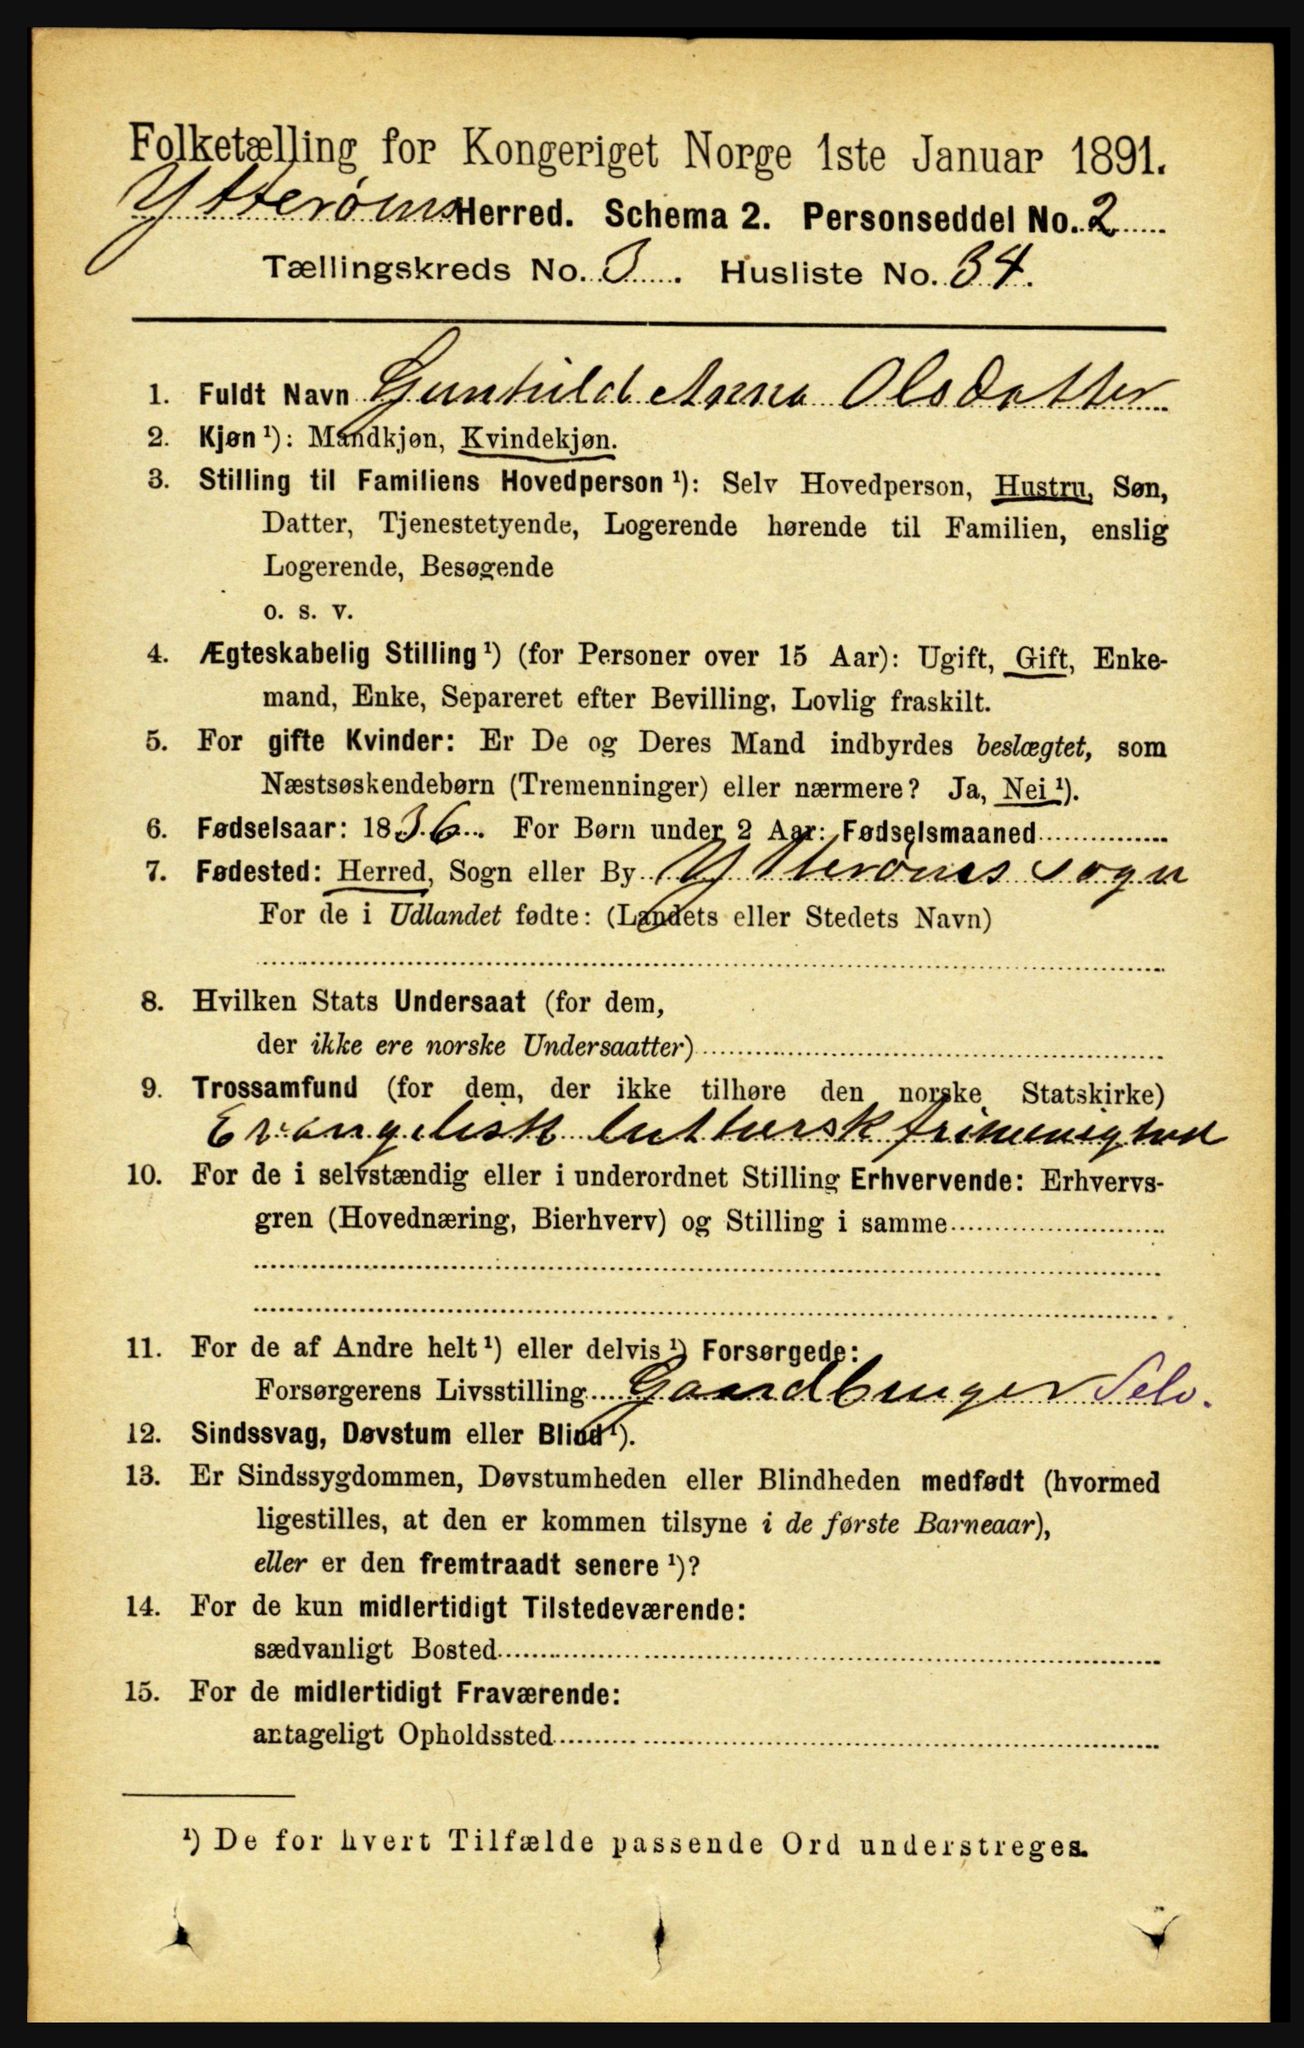 Folketælling for Kongeriget Norge 1ste Januar 1891.
Ytterøens Herred. Schema 2. Personseddel No. 2
Tællingskreds No. 3. Husliste No. 34.
1. Fuldt Navn Gunhild Anna Olsdatter
2. Kjøn ¹): Mandkjøn, Kvindekjøn.
3. Stilling til Familiens Hovedperson ¹): Selv Hovedperson, Hustru, Søn,
Datter, Tjenestetyende, Logerende hørende til Familien, enslig
Logerende, Besøgende
o. s. v.
4. Ægteskabelig Stilling ¹) (for Personer over 15 Aar): Ugift, Gift, Enke-
mand, Enke, Separeret efter Bevilling, Lovlig fraskilt.
5. For gifte Kvinder: Er De og Deres Mand indbyrdes beslægtet, som
Næstsøskendebørn (Tremenninger) eller nærmere? Ja, Nei ¹).
6. Fødselsaar: 1836. For Børn under 2 Aar: Fødselsmaaned
7. Fødested: Herred, Sogn eller By Ytterønes Sogn
For de i Udlandet fødte: (Landets eller Stedets Navn)
8. Hvilken Stats Undersaat (for dem,
der ikke ere norske Undersaatter)
9. Trossamfund (for dem, der ikke tilhøre den norske Statskirke)
Evangelisk luthersk frimenighed
10. For de i selvstændig eller i underordnet Stilling Erhvervende: Erhvervs-
gren (Hovednæring, Bierhverv) og Stilling i samme
11. For de af Andre helt ¹) eller delvis ¹) Forsørgede:
Forsørgerens Livsstilling Gaardbruger Selv.
12. Sindssvag, Døvstum eller Blind ¹).
13. Er Sindssygdommen, Døvstumheden eller Blindheden medfødt (hvormed
ligestilles, at den er kommen tilsyne i de første Barneaar),
eller er den fremtraadt senere ¹)?
14. For de kun midlertidigt Tilstedeværende:
sædvanligt Bosted
15. For de midlertidigt Fraværende:
antageligt Opholdssted
¹) De for hvert Tilfælde passende Ord understreges.